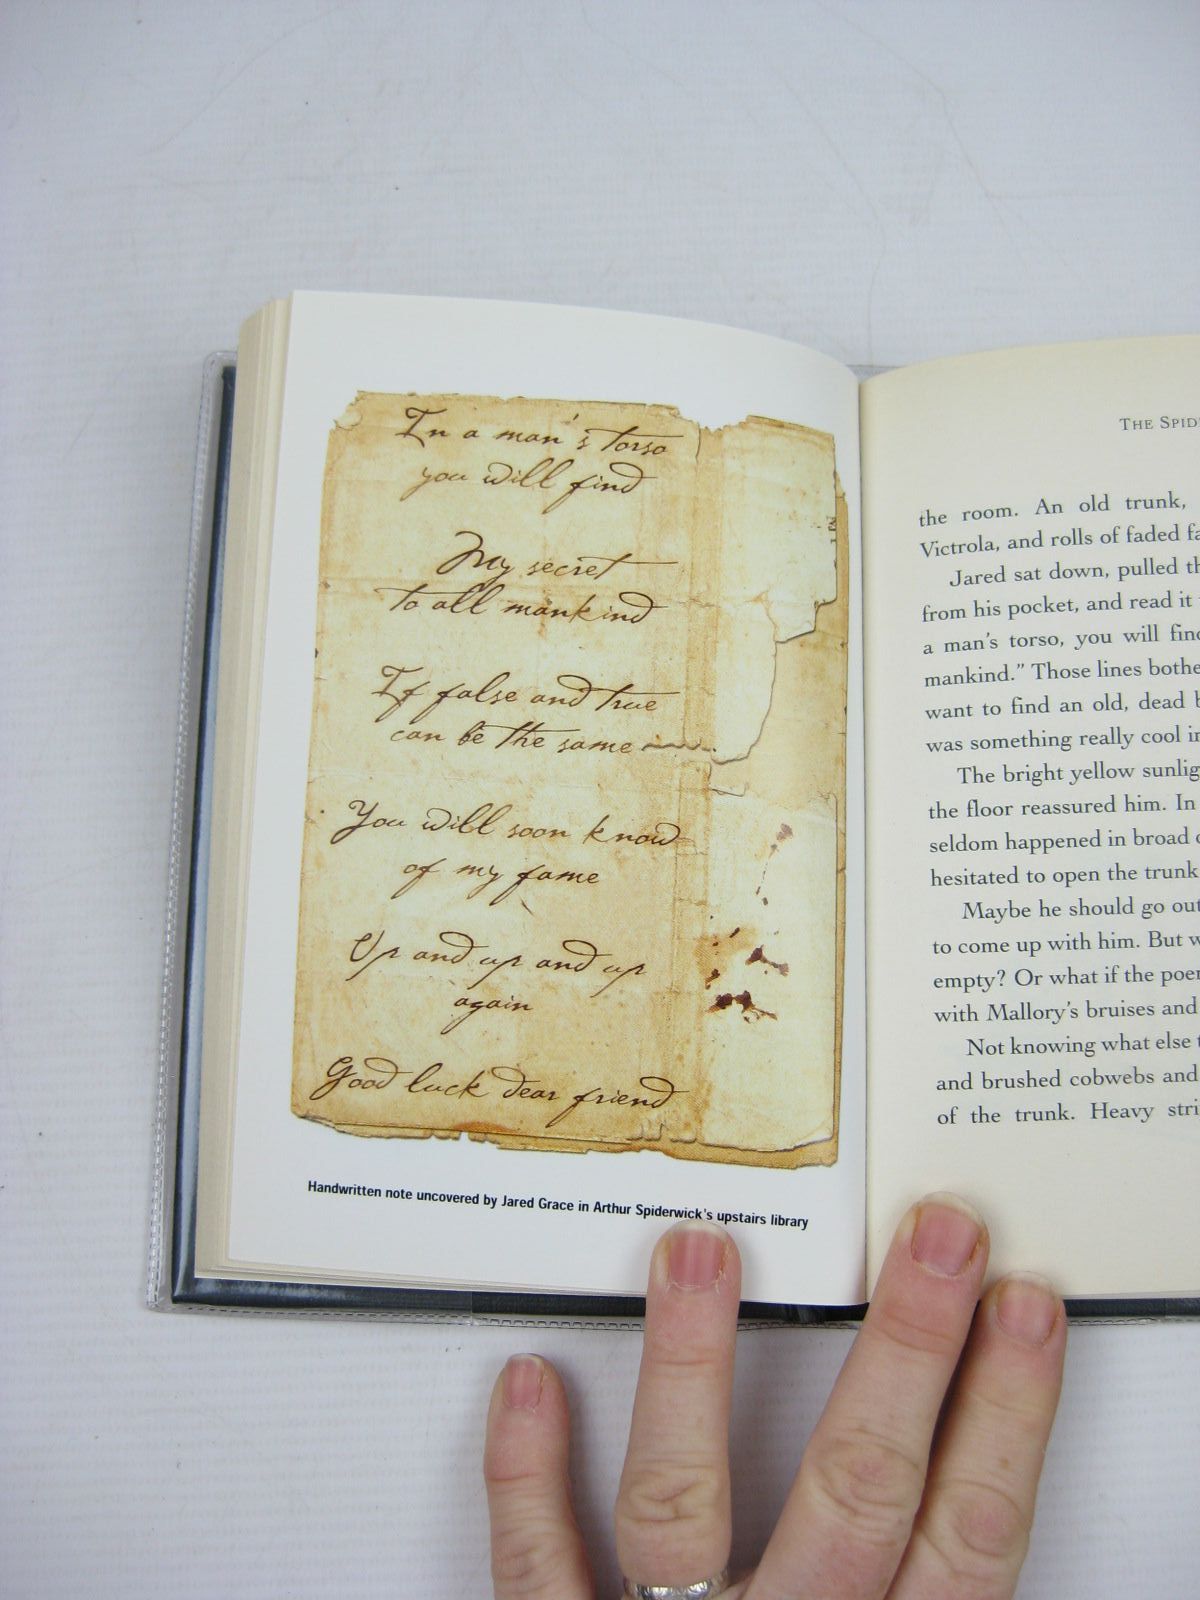 In a man's torso
you will find
My secret
to all mankind
If false and true
can be the same
You will soon know
of my fame
Up and up and up
again
Good luck dear friend
Handwritten note uncovered by Jared Grace in Arthur Spiderwick's upstairs library
THE SPID
the room. An old trunk,
Victrola, and rolls of faded fa
Jared sat down, pulled th
from his pocket, and read it
a man's torso, you will find
mankind." Those lines bothe
want to find an old, dead b
was something really cool in
The bright yellow sunlig
the floor reassured him. In
seldom happened in broad
hesitated to open the trunk
Maybe he should go out
to come up with him. But w
empty? Or what if the poem
with Mallory's bruises and
Not knowing what else t
and brushed cobwebs and
of the trunk. Heavy stri